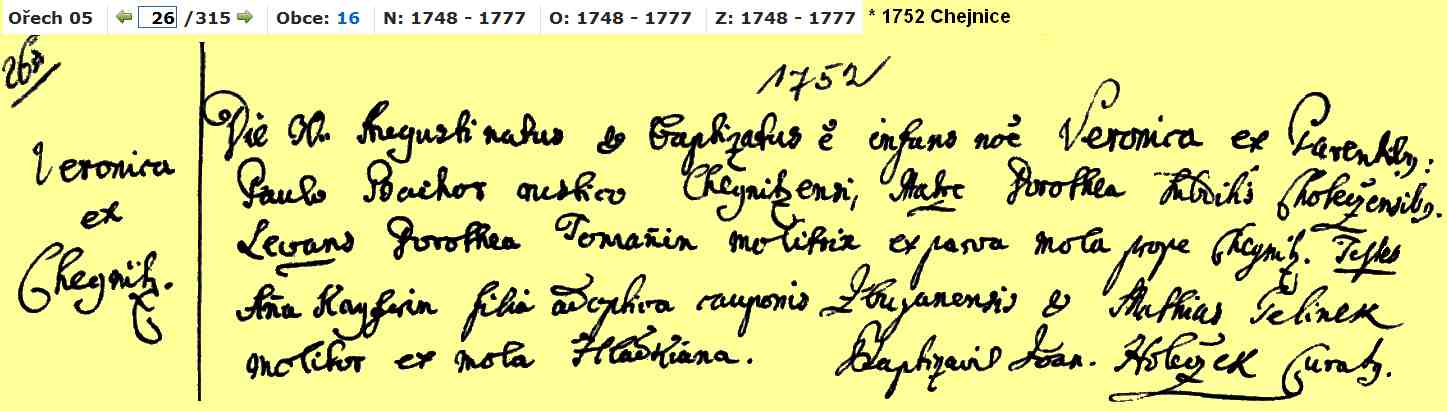 Ořech 05 26 /315 Obce: 16 N: 1748 - 1777 O: 1748 - 1777 Z: 1748 - 1777 * 1752 Chejnice
26ta
1752
Veronica
ex
Chegnitz.
Die Augusti natus & Baptizatus ē infans noē Veronica ex Parentibq:
Paulo Bachor rustico Chegnitzensi, Matre Dorothea subditis Choteczensibq.
Levans Dorothea Tomañin molitrix ex parva mola prope Chegnitz. Testes
Aña Kayserin filia adoptiva cauponis Zbuzanensis & Mathias Jelinek
molitor ex mola Hladkiana. Baptizavit Joan. Holeczek Curatq.